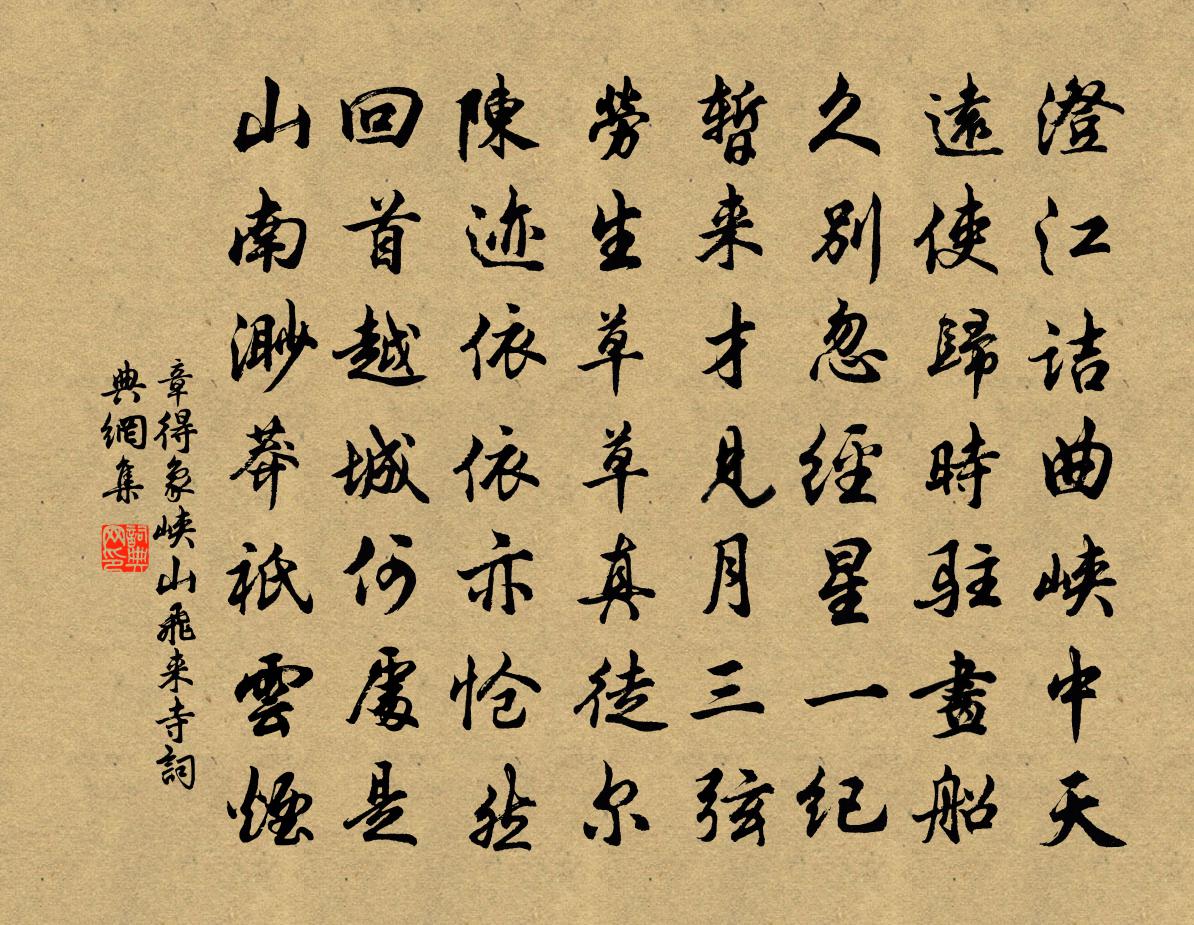 澄江詰曲峡中天
遠使歸時駐畫船
久別忽經星一紀
暫来才見月三弦
勞生草草真徒尔
陳迹依依亦愴然
回首越城何處是
山南渺莽祇雲煙
章得象峡山飛来寺詞
典網集
詞典网印